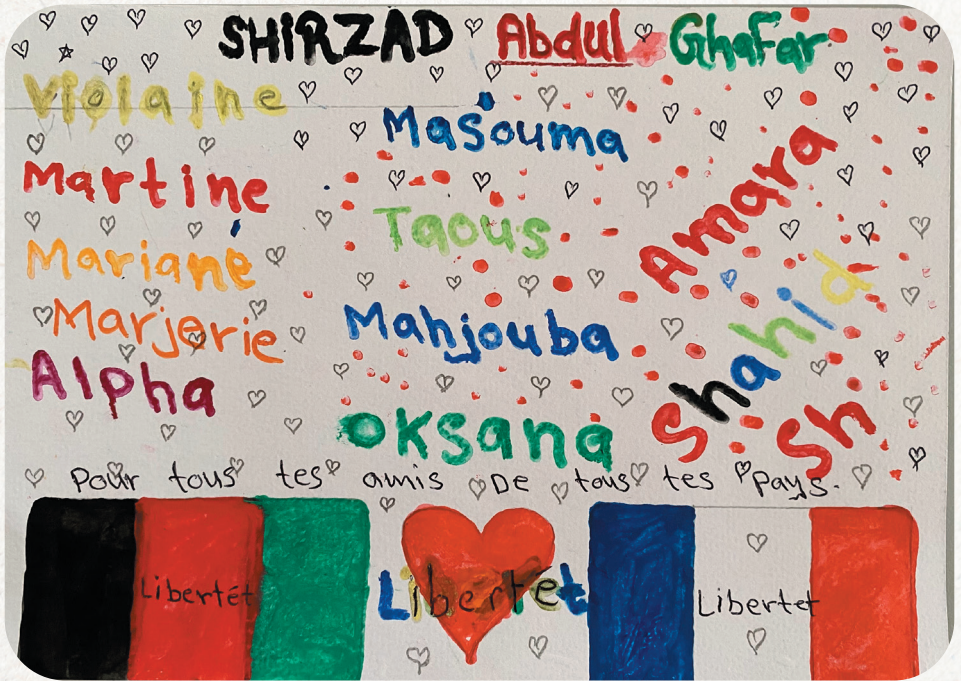 SHIRZAD Abdul Ghafar
Violaine
Masouma
Martine
Amara
Taous
Mariané
Shahid
Marjorie
Mahjouba
Alpha
Sh
OKsana
Pour tous tes amis De tous tes pays.
Libertét
Libertet
Libertet